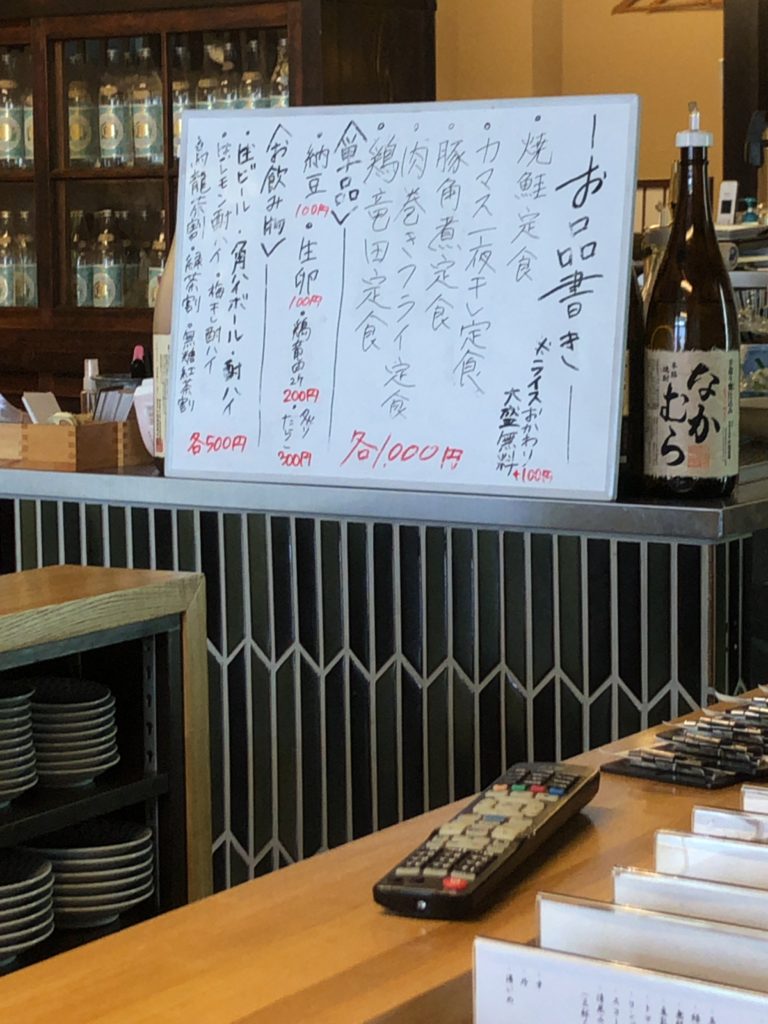 お品書き
※ライスおかわり、
大盛無料
+100円
・焼鮭定食
・カマス一夜干し定食
・豚角煮定食
・肉巻きフライ定食
・鶏竜田定食
各1,000円
〈単品〉
・納豆 100円
・生卵 100円
・鶏竜田2ケ 200円
・炙りたらこ 300円
〈お飲み物〉
・生ビール・角ハイボール・酎ハイ
・生レモン酎ハイ・梅干し酎ハイ
・烏龍茶割・緑茶割・無糖紅茶割
各500円
本格
焼酎
なかむら